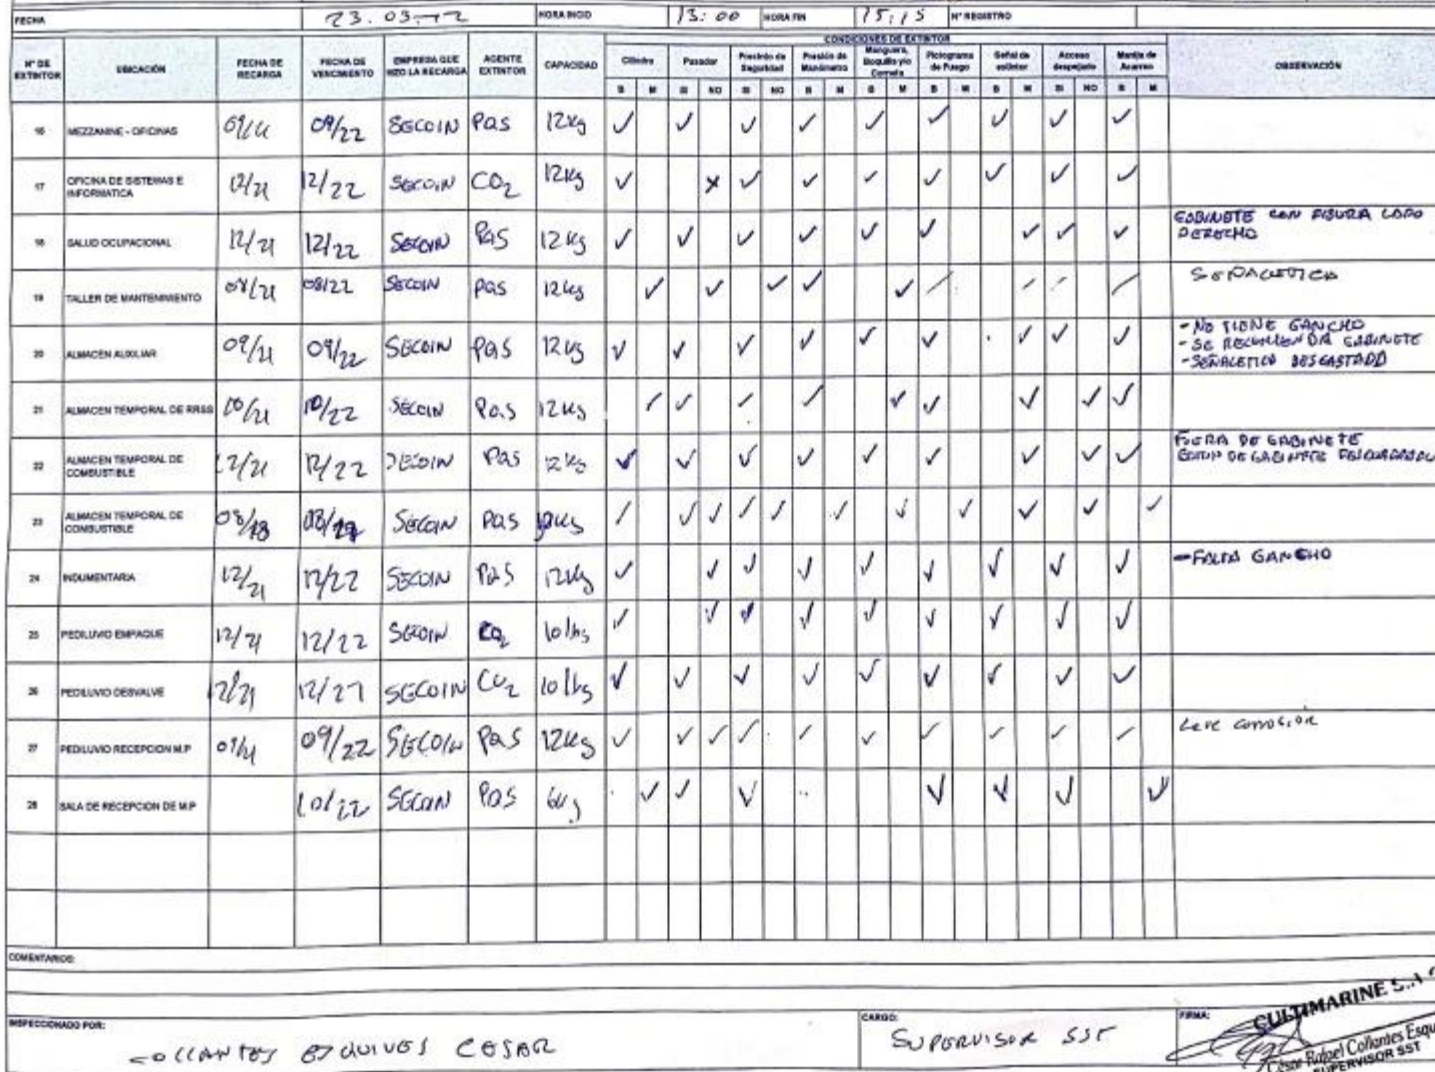 FECHA 23.03.22 HORA INICIO 13:00 HORA FIN 15:15 N° REGISTRO
CONDICIONES DE EXTINTOR
N° DE EXTINTOR UBICACIÓN FECHA DE RECARGA FECHA DE VENCIMIENTO EMPRESA QUE HIZO LA RECARGA AGENTE EXTINTOR CAPACIDAD Cilindro Pasador Precinto de Seguridad Presión de Manómetro Manguera, Boquilla y/o Corneta Pictograma de Fuego Señal de extintor Acceso despejado Manija de Acarreo OBSERVACIÓN
B M SI NO SI NO B M B M B M B M SI NO B M
16 MEZZANINE - OFICINAS 09/22 SECOIN PQS 12Kg ✓ ✓ ✓ ✓ ✓ ✓ ✓ ✓ ✓
17 OFICINA DE SISTEMAS E INFORMATICA 12/21 12/22 SECOIN CO2 12Kg ✓ x ✓ ✓ ✓ ✓ ✓ ✓ ✓
18 SALUD OCUPACIONAL 12/21 12/22 SECOIN PQS 12Kg ✓ ✓ ✓ ✓ ✓ ✓ ✓ ✓ ✓ GABINETE CON FISURA LADO DERECHO
19 TALLER DE MANTENIMIENTO 08/21 08/22 SECOIN PQS 12Kg ✓ ✓ ✓ ✓ ✓ ✓ ✓ ✓ ✓
20 ALMACEN AUXILIAR 09/21 09/22 SECOIN PQS 12Kg ✓ ✓ ✓ ✓ ✓ ✓ ✓ ✓ ✓ - NO TIENE GANCHO
- SE RECOMIENDA GABINETE
- SEÑALETICA DESGASTADA
21 ALMACEN TEMPORAL DE RRSS 10/21 10/22 SECOIN PQS 12Kg ✓ ✓ ✓ ✓ ✓ ✓ ✓ ✓ ✓
22 ALMACEN TEMPORAL DE COMBUSTIBLE 12/21 12/22 SECOIN PQS 12Kg ✓ ✓ ✓ ✓ ✓ ✓ ✓ ✓ ✓ FUERA DE GABINETE
DE GABINETE
23 ALMACEN TEMPORAL DE COMBUSTIBLE SECOIN PQS ✓ ✓ ✓ ✓ ✓ ✓ ✓ ✓ ✓ ✓ ✓
24 INDUMENTARIA 12/21 12/22 SECOIN PQS 12Kg ✓ ✓ ✓ ✓ ✓ ✓ ✓ ✓ ✓ - FALTA GANCHO
25 PEDILUVIO EMPAQUE 12/21 12/22 SECOIN CO2 10 lbs ✓ ✓ ✓ ✓ ✓ ✓ ✓ ✓ ✓
26 PEDILUVIO DESVALVE 12/21 12/22 SECOIN CO2 10 lbs ✓ ✓ ✓ ✓ ✓ ✓ ✓ ✓ ✓
27 PEDILUVIO RECEPCION M.P 09/21 09/22 SECOIN PQS 12Kg ✓ ✓ ✓ ✓ ✓ ✓ ✓ ✓ ✓ ✓ Leve corrosión
28 SALA DE RECEPCION DE M.P 10/22 SECOIN PQS 6Kg ✓ ✓ ✓ ✓ ✓ ✓ ✓
COMENTARIOS:
INSPECCIONADO POR: COLLANTES ESQUIVES CESAR CARGO: SUPERVISOR SST FIRMA:
CULTIMARINE S.A.C
César Rafael Collantes Esqui
SUPERVISOR SST